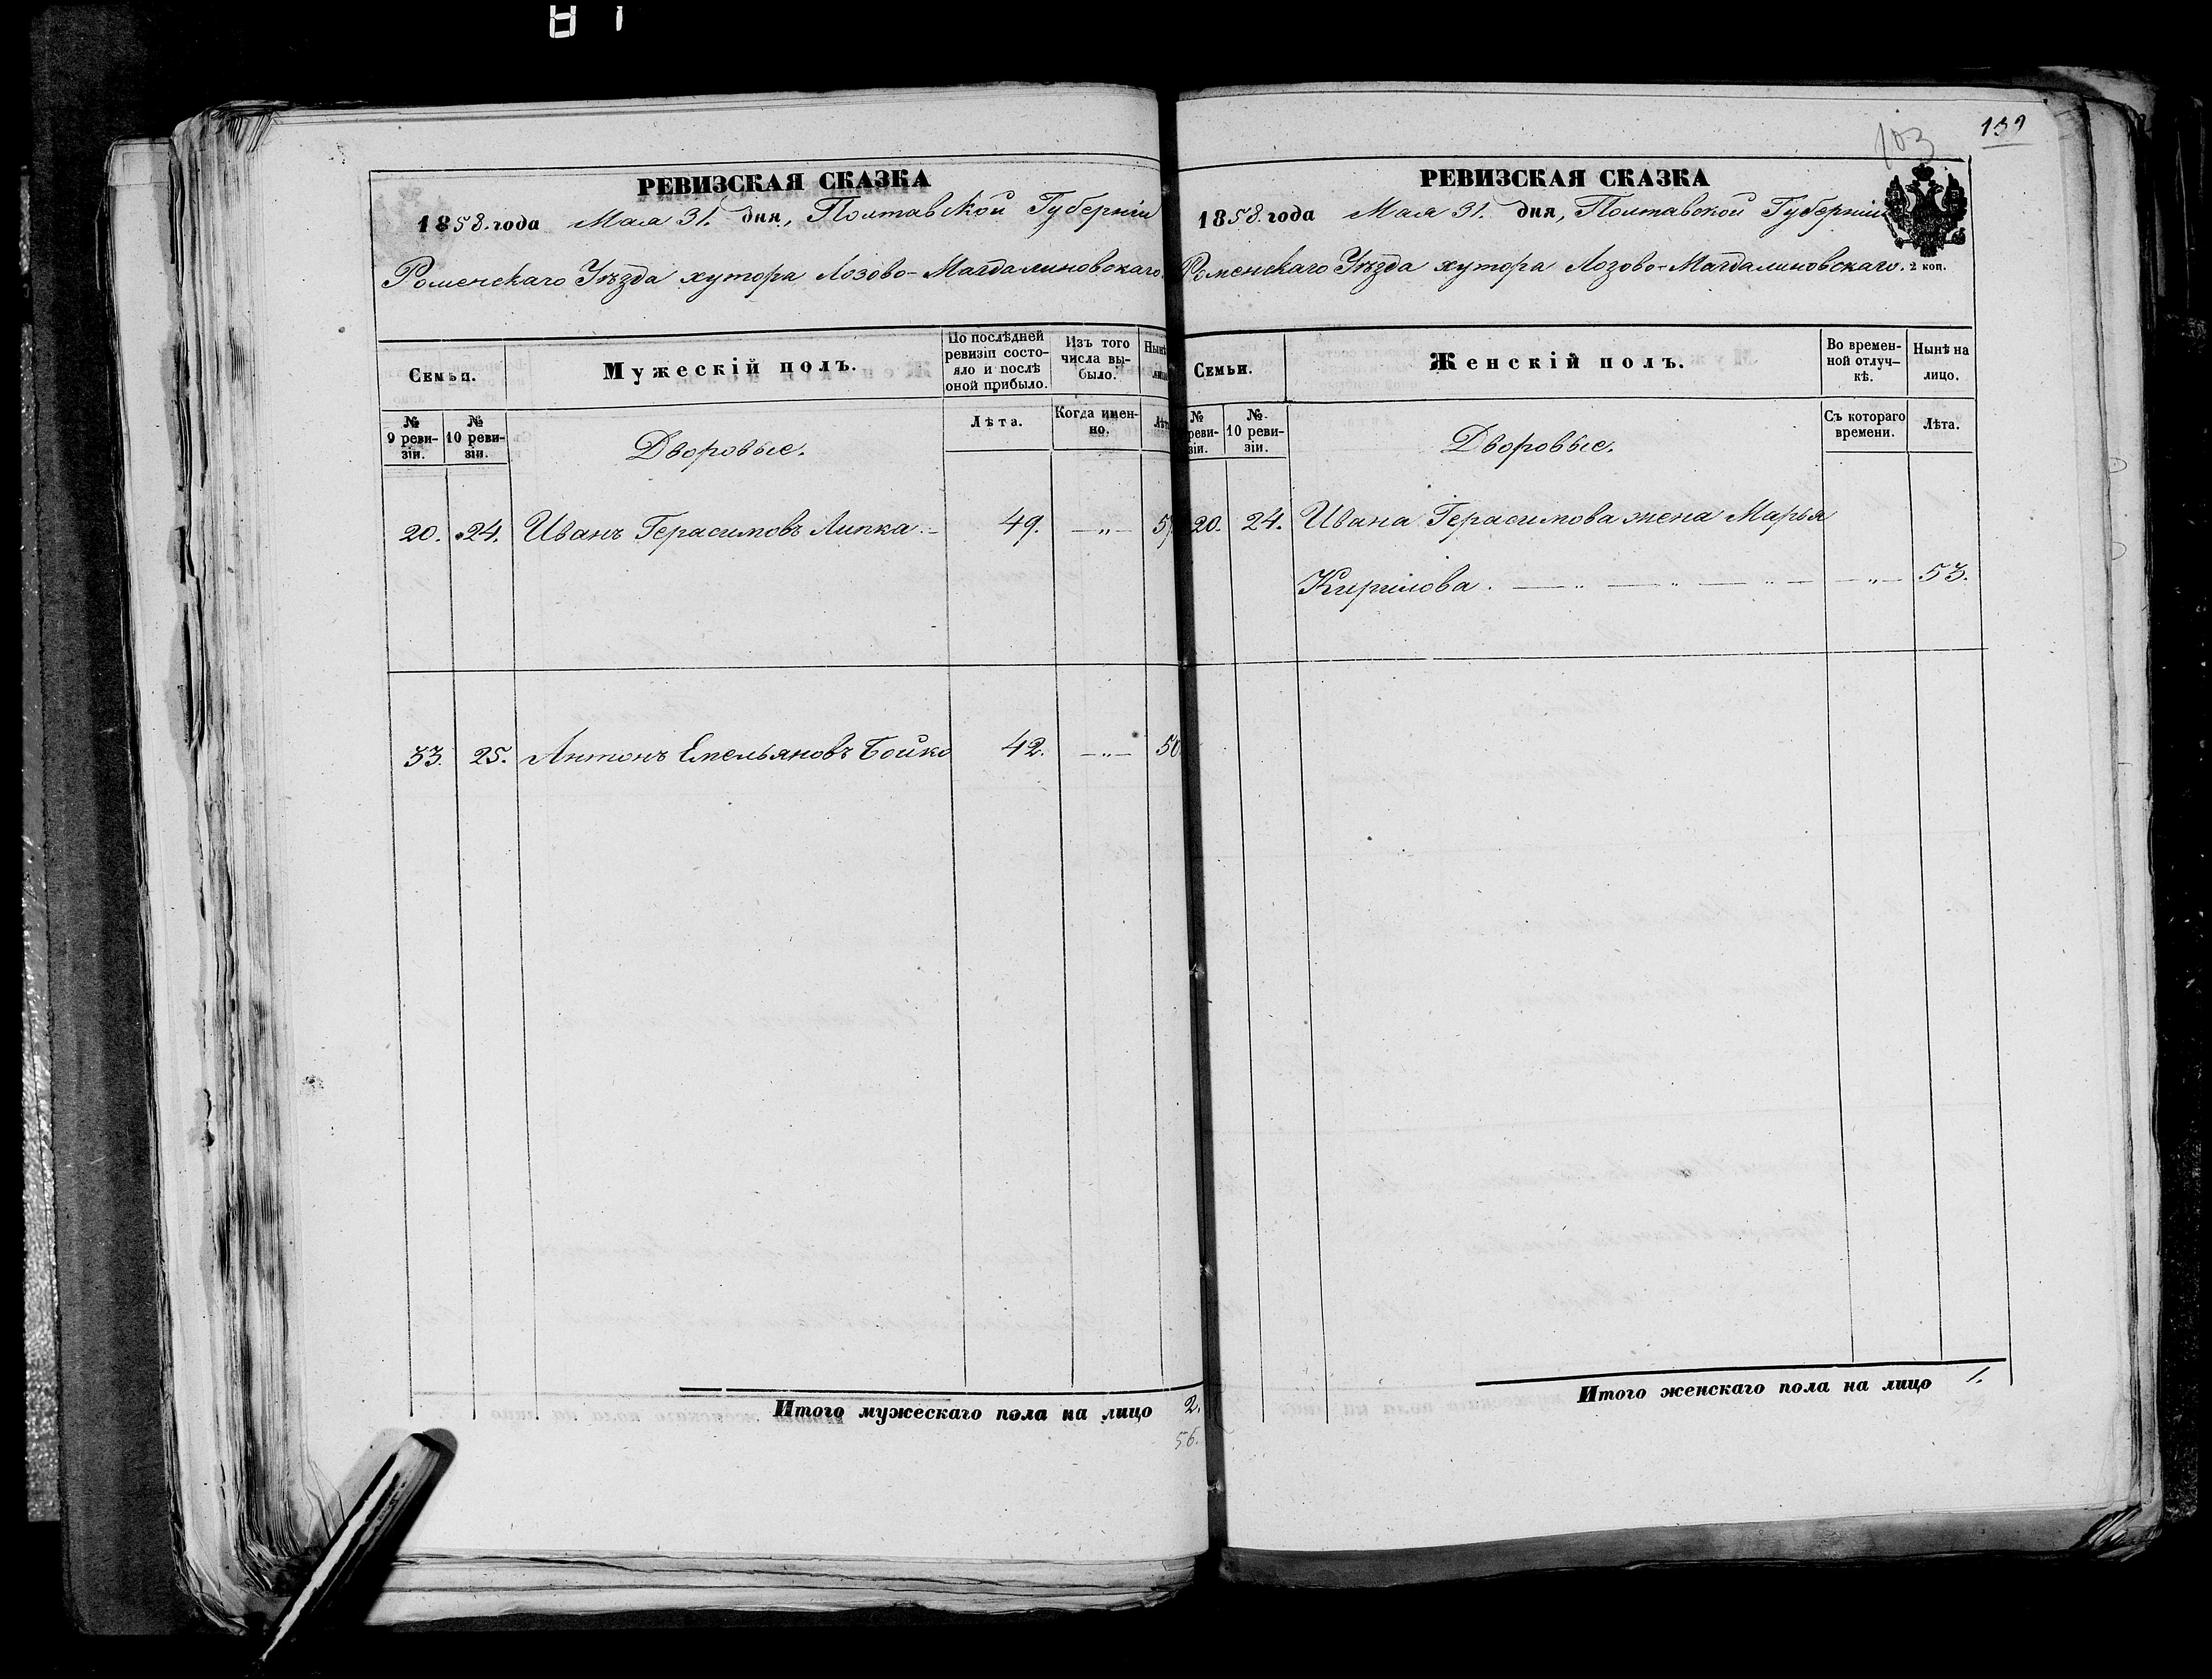 РЕВИЗСКАЯ СКАЗКА
1858. года Мая 31. дня, Полтавской Губерніи
Роменскаго Уѣзда хутора Лозово-Магдалиновскаго.
Семьи.
Мужескій полъ.
По послѣдней ревизіи состо-
яло и послѣ
оной прибыло.
Изъ того
числа вы-
было.
Нынѣ
№
9 реви-
зіи.
№
10 реви-
зіи.
Дворовые.
Лѣта.
Когда имен-
но.
20. 24. Иванъ Герасимовъ Липка. – 49. —„— 57
33. 25. Антонъ Емельяновъ Бойко 42. —„— 50.
Итого мужескаго пола на лицо 2.
56.
103
РЕВИЗСКАЯ СКАЗКА
1858. года Мая 31. дня, Полтавской Губерніи
Роменскаго Уѣзда хутора Лозово-Магдалиновскаго.
2 коп.
Семьи.
Женскій полъ.
Во времен-
ной отлуч-
кѣ.
Нынѣ на
лицо.
№
реви-
зіи.
№
10 реви-
зіи.
Дворовые.
Съ котораго
времени.
Лѣта.
20. 24. Ивана Герасимова жена Марья
Кирилова. —„—„—„— —„— 53.
Итого женскаго пола на лицо 1.